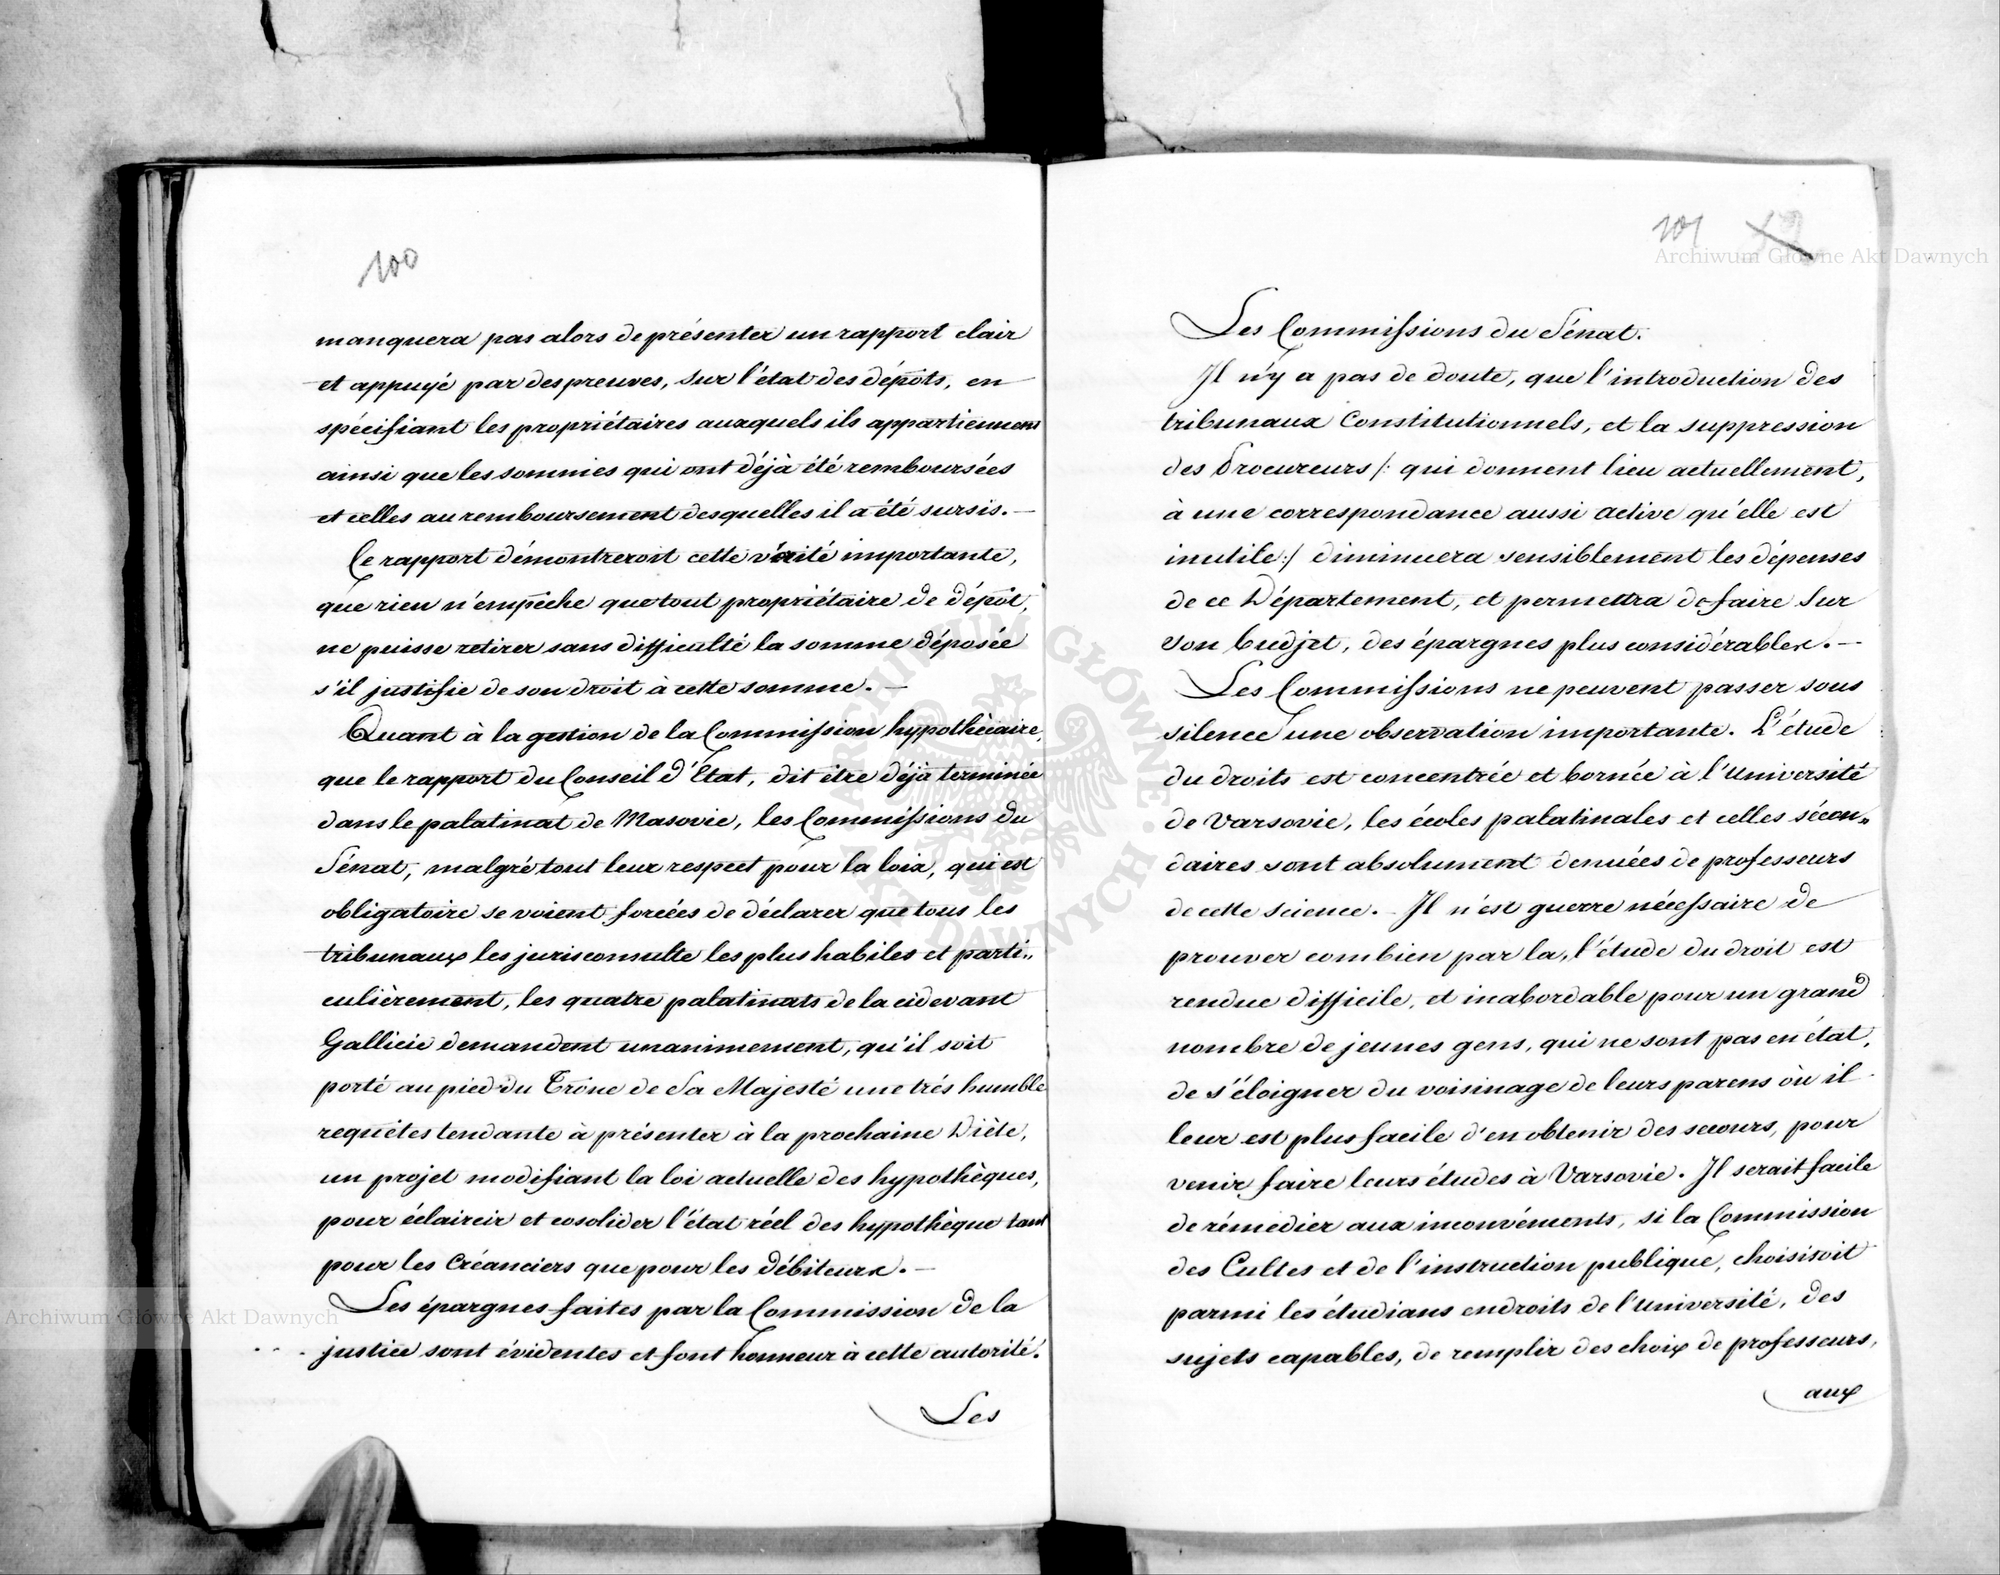 100
manquera pas alors de présenter un rapport clair
et appuyé par des preuves, sur l'état des dépots, en
spécifiant les propriétaires auxquels ils appartiennent
ainsi que les sommes qui ont déjà été remboursées
et celles au remboursement desquelles il a été sursis. —
Ce rapport démontreroit cette vérité importante,
que rien n'empêche que tout propriétaire de dépôt,
ne puisse retirer sans difficulté la somme déposée
s'il justifie de son droit à cette somme. —
Quant à la gestion de la Commission hypothécaire,
que le rapport du Conseil d'Etat, dit être déjà terminée
dans le palatinat de Masovie, les Commissions du
Sénat, malgré tout leur respect pour la loix, qui est
obligatoire se voient forcées de déclarer que tous les
tribunaux les jurisconsulte les plus habiles et parti„
culièrement, les quatre palatinats de la cidevant
Gallicie demandent unanimement, qu'il soit
porté au pied du Trône de Sa Majesté une trés humble
requêtes tendante à présenter à la prochaine Diète,
un projet modifiant la loi actuelle des hypothèques,
pour éclaircir et cosolider l'état réel des hypothèque tant
pour les Créanciers que pour les débiteurs. —
Les épargnes faites par la Commission de la
justice sont évidentes et font honneur à cette autorité.
Les
101
Les Commissions du Sénat.
Il n'y a pas de doute, que l'introduction des
tribunaux Constitutionnels, et la suppression
des Procureurs /: qui donnent lieu actuellement,
à une correspondance aussi active qu'elle est
inutile :/ diminuera sensiblement les dépenses
de ce Département, et permettra de faire sur
son budjet, des épargnes plus considérables. —
Les Commissions ne peuvent passer sous
silence une observation importante. L'étude
du droits est concentrée et bornée à l'université
de Varsovie, les écoles palatinales et celles sécon„
daires sont absolument denuées de professeurs
de cette science. — Il n'est guerre nécessaire de
prouver combien par la, l'étude du droit est
rendue difficile, et inabordable pour un grand
nombre de jeunes gens, qui ne sont pas en état,
de s'éloigner du voisinage de leurs parens où il
leur est plus facile d'en obtenir des secours, pour
venir faire leurs études à Varsovie. Il serait facile
de rémedier aux inconvéments, si la Commission
des Cultes et de l'instruction publique, choisiroit
parmi les étudians endroits de l'université, des
sujets capables, de remplir des choix de professeurs,
aux
Archiwum Główne Akt Dawnych
Archiwum Główne Akt Dawnych
ARCHIWUM GŁÓWNE AKT DAWNYCH